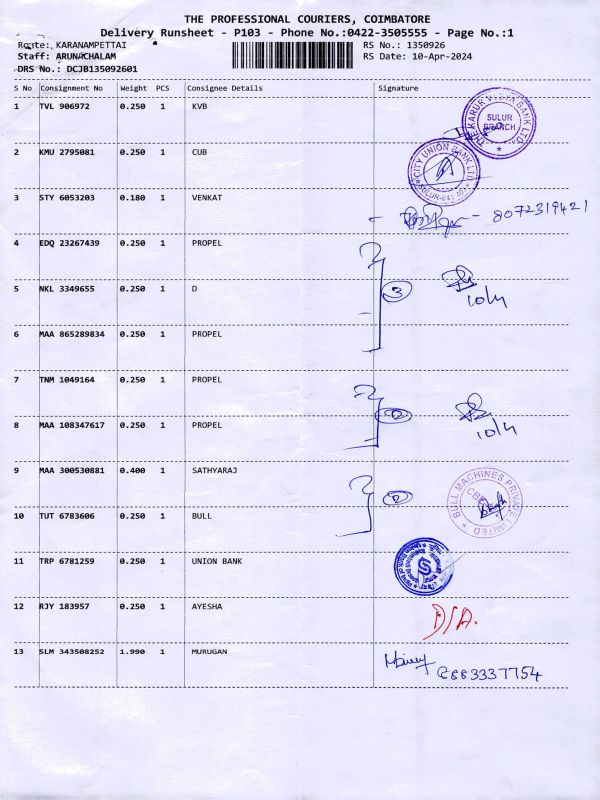 THE PROFESSIONAL COURIERS, COIMBATORE
Delivery Runsheet - P103 - Phone No.:0422-3505555 - Page No.:1
Route: KARANAMPETTAI RS No.: 1350926
Staff: ARUNACHALAM RS Date: 10-Apr-2024
DRS No.: DCJB135092601
S No Consignment No Weight PCS Consignee Details Signature
1 TVL 906972 0.250 1 KVB
THE KARUR VYSYA BANK LTD. SULUR BRANCH
2 KMU 2795081 0.250 1 CUB
CITY UNION BANK LTD
3 STY 6053203 0.180 1 VENKAT
8072319421
4 EDQ 23267439 0.250 1 PROPEL
5 NKL 3349655 0.250 1 D 3
10/4
6 MAA 865289834 0.250 1 PROPEL
7 TNM 1049164 0.250 1 PROPEL
8 MAA 108347617 0.250 1 PROPEL 2
10/4
9 MAA 300530881 0.400 1 SATHYARAJ
BULL MACHINES PRIVATE LIMITED
10 TUT 6783606 0.250 1 BULL
11 TRP 6781259 0.250 1 UNION BANK
12 RJY 183957 0.250 1 AYESHA D/A.
13 SLM 343508252 1.990 1 MURUGAN